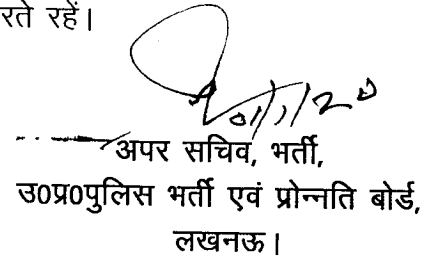 रते रहें।
अपर सचिव, भर्ती,
उ0प्र0पुलिस भर्ती एवं प्रोन्नति बोर्ड,
लखनऊ।